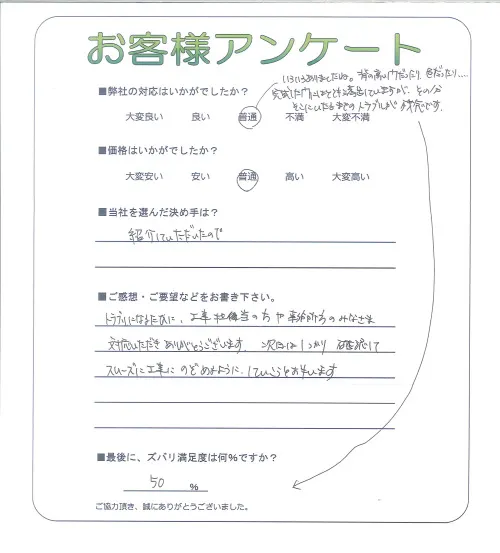 お客様アンケート
■弊社の対応はいかがでしたか？
いろいろありましたね。 背の高いウだったり、色だったり....
完成したウにはとても満足していますが、その分
そこにいたるまでのトラブルが残念です。
大変良い 良い 普通 不満 大変不満
■価格はいかがでしたか？
大変安い 安い 普通 高い 大変高い
■当社を選んだ決め手は？
紹介していただいたので
■ご感想・ご要望などをお書き下さい。
トラブルになるたびに、工事担当の方や事務所の方のみなさま
対応いただきありがとうございます。 次回はしっかり確認して
スムーズに工事にのぞめるように、していこうと思います
■最後に、ズバリ満足度は何％ですか？
50 ％
ご協力頂き、誠にありがとうございました。